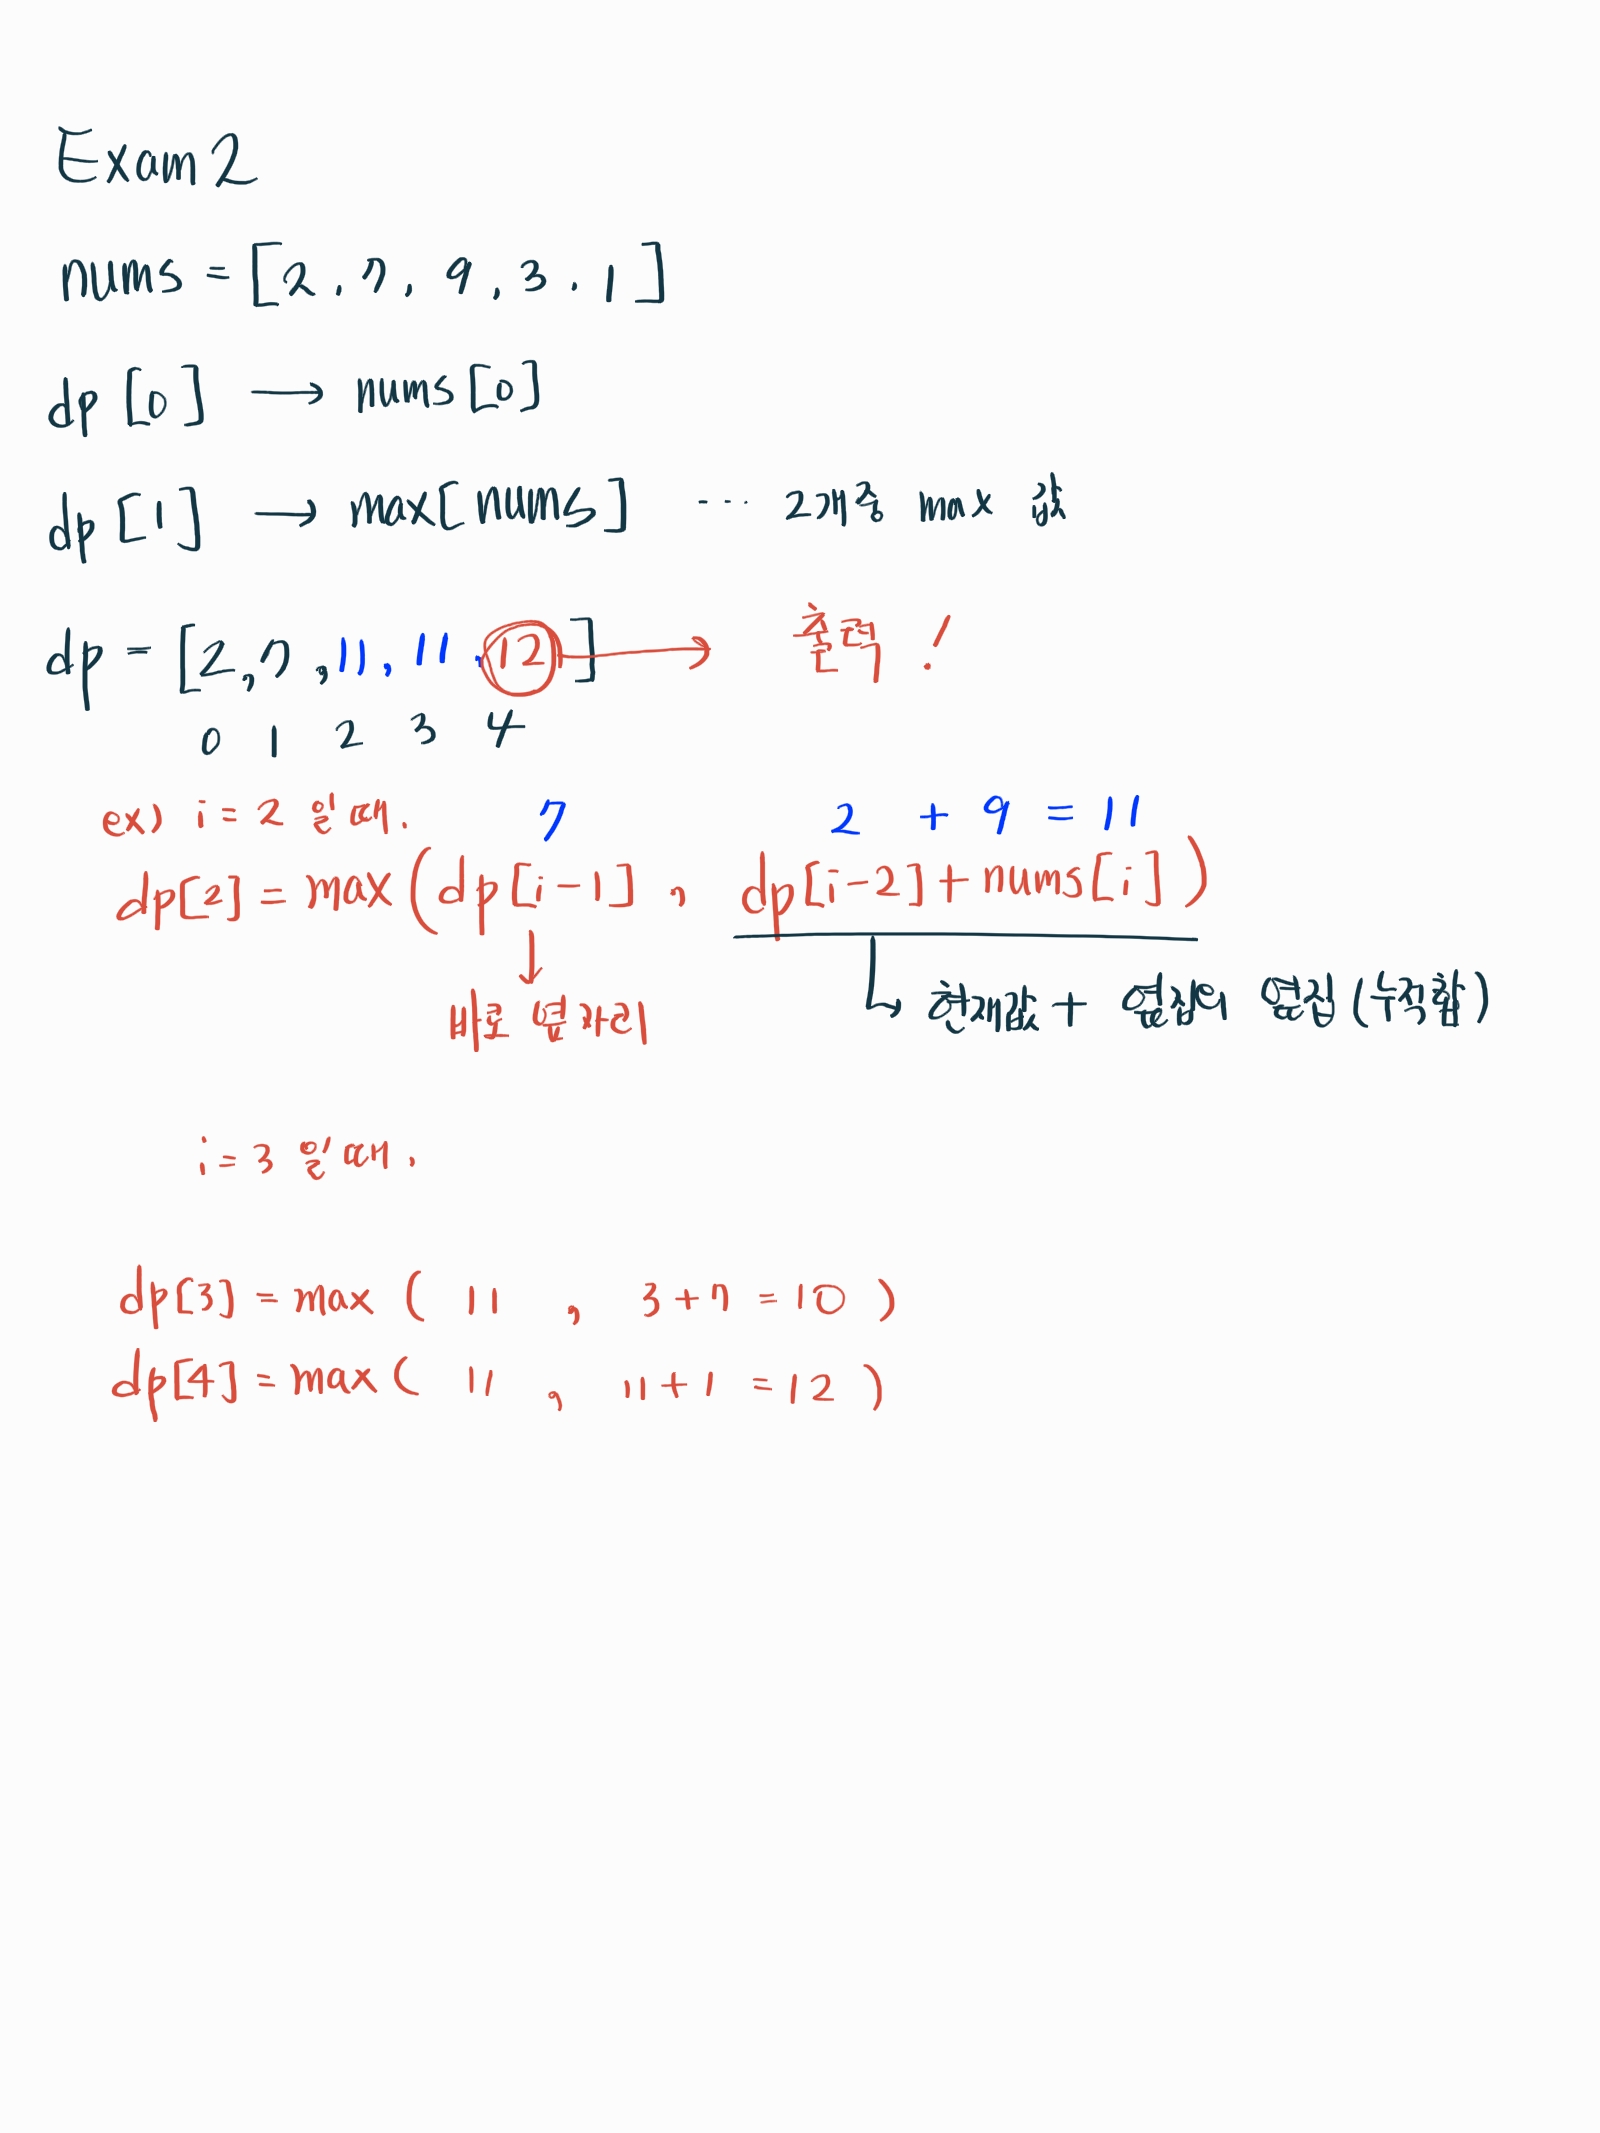 Exam 2
nums = [2, 7, 9, 3, 1]
dp [0] → nums [0]
dp [1] → max[nums] ... 2개중 max 값
dp = [2, 7, 11, 11, 12] → 출력 !
0 1 2 3 4
ex) i = 2 일때. 7 2 + 9 = 11
dp[2] = max (dp[i-1] , dp[i-2] + nums[i])
↓ ↳ 현재값 + 옆집의 옆집 (누적합)
바로 옆자리
i = 3 일때.
dp[3] = max ( 11 , 3+7 = 10 )
dp[4] = max ( 11 , 11+1 = 12 )